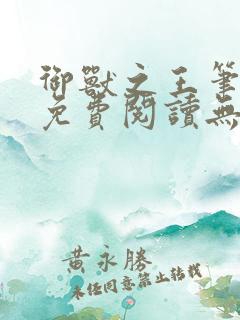 御獸之王筆
免費閱讀無
黃永勝
未經同意禁止轉載